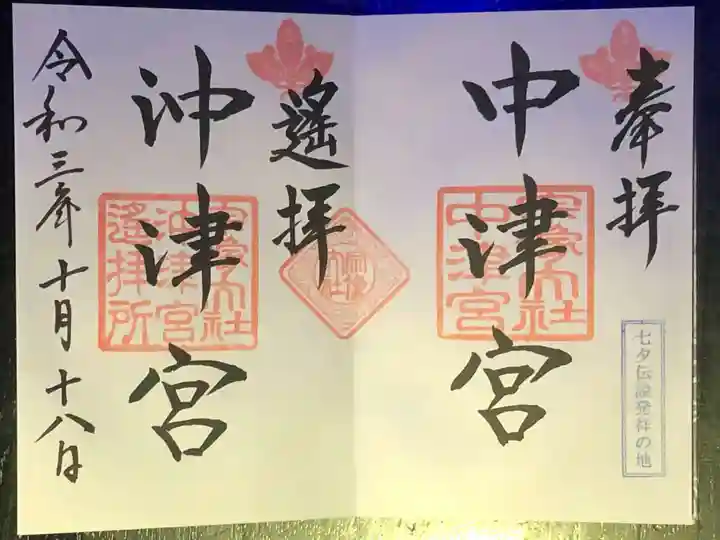 奉拝
七夕伝説発祥の地
中津宮
宗像大社
中津宮
遙拝
沖津宮
宗像大社
沖津宮
遙拝所
令和三年十月十八日